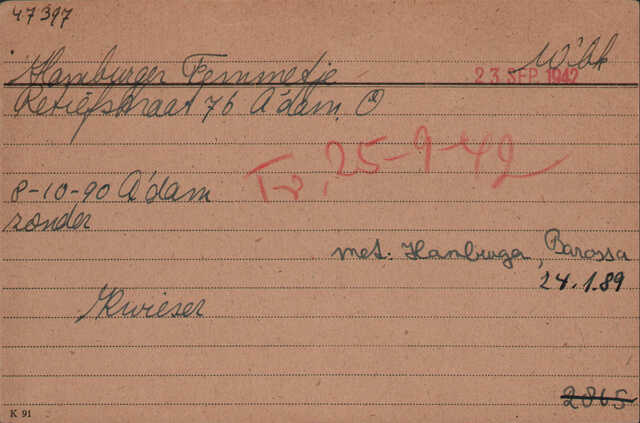 47397
Hamburger Femmetje W'bk
23 SEP 1942
Retiefstraat 76 A'dam O
Tr. 25-9-42
8-10-90 A'dam
zonder
met: Hamburger, Barossa
24.1.89
Kwieser
2865
K 91